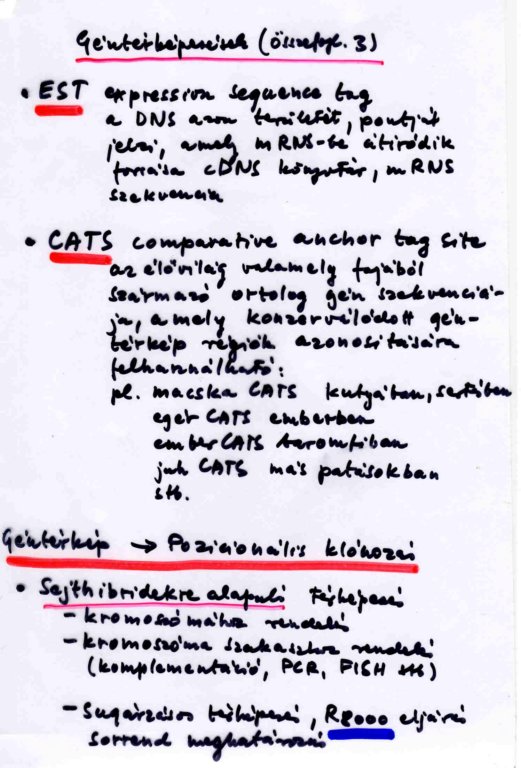 Géntérképezések (összefogl. 3)
• EST expression sequence tag
a DNS azon területét, pontját
jelzi, amely mRNS-be átíródik
forrása cDNS könyvtár, mRNS
szekvencia
• CATS comparative anchor tag site
az élővilág valamely fajából
származó ortolog gén szekvenciá-
ja, amely konzerválódott gén-
térkép régiók azonosítására
felhasználható:
pl. macska CATS kutyában, sertésben
egér CATS emberben
ember CATS baromfiban
juh CATS más patásokban
stb.
Géntérkép → Pozícionális klónozás
• Sejthibridekre alapuló térképezés
- kromoszómához rendelés
- kromoszóma szakaszhoz rendelés
(komplementáció, PCR, FISH stb)
- Sugárzásos térképezés, R8000 eljárás
sorrend meghatározás